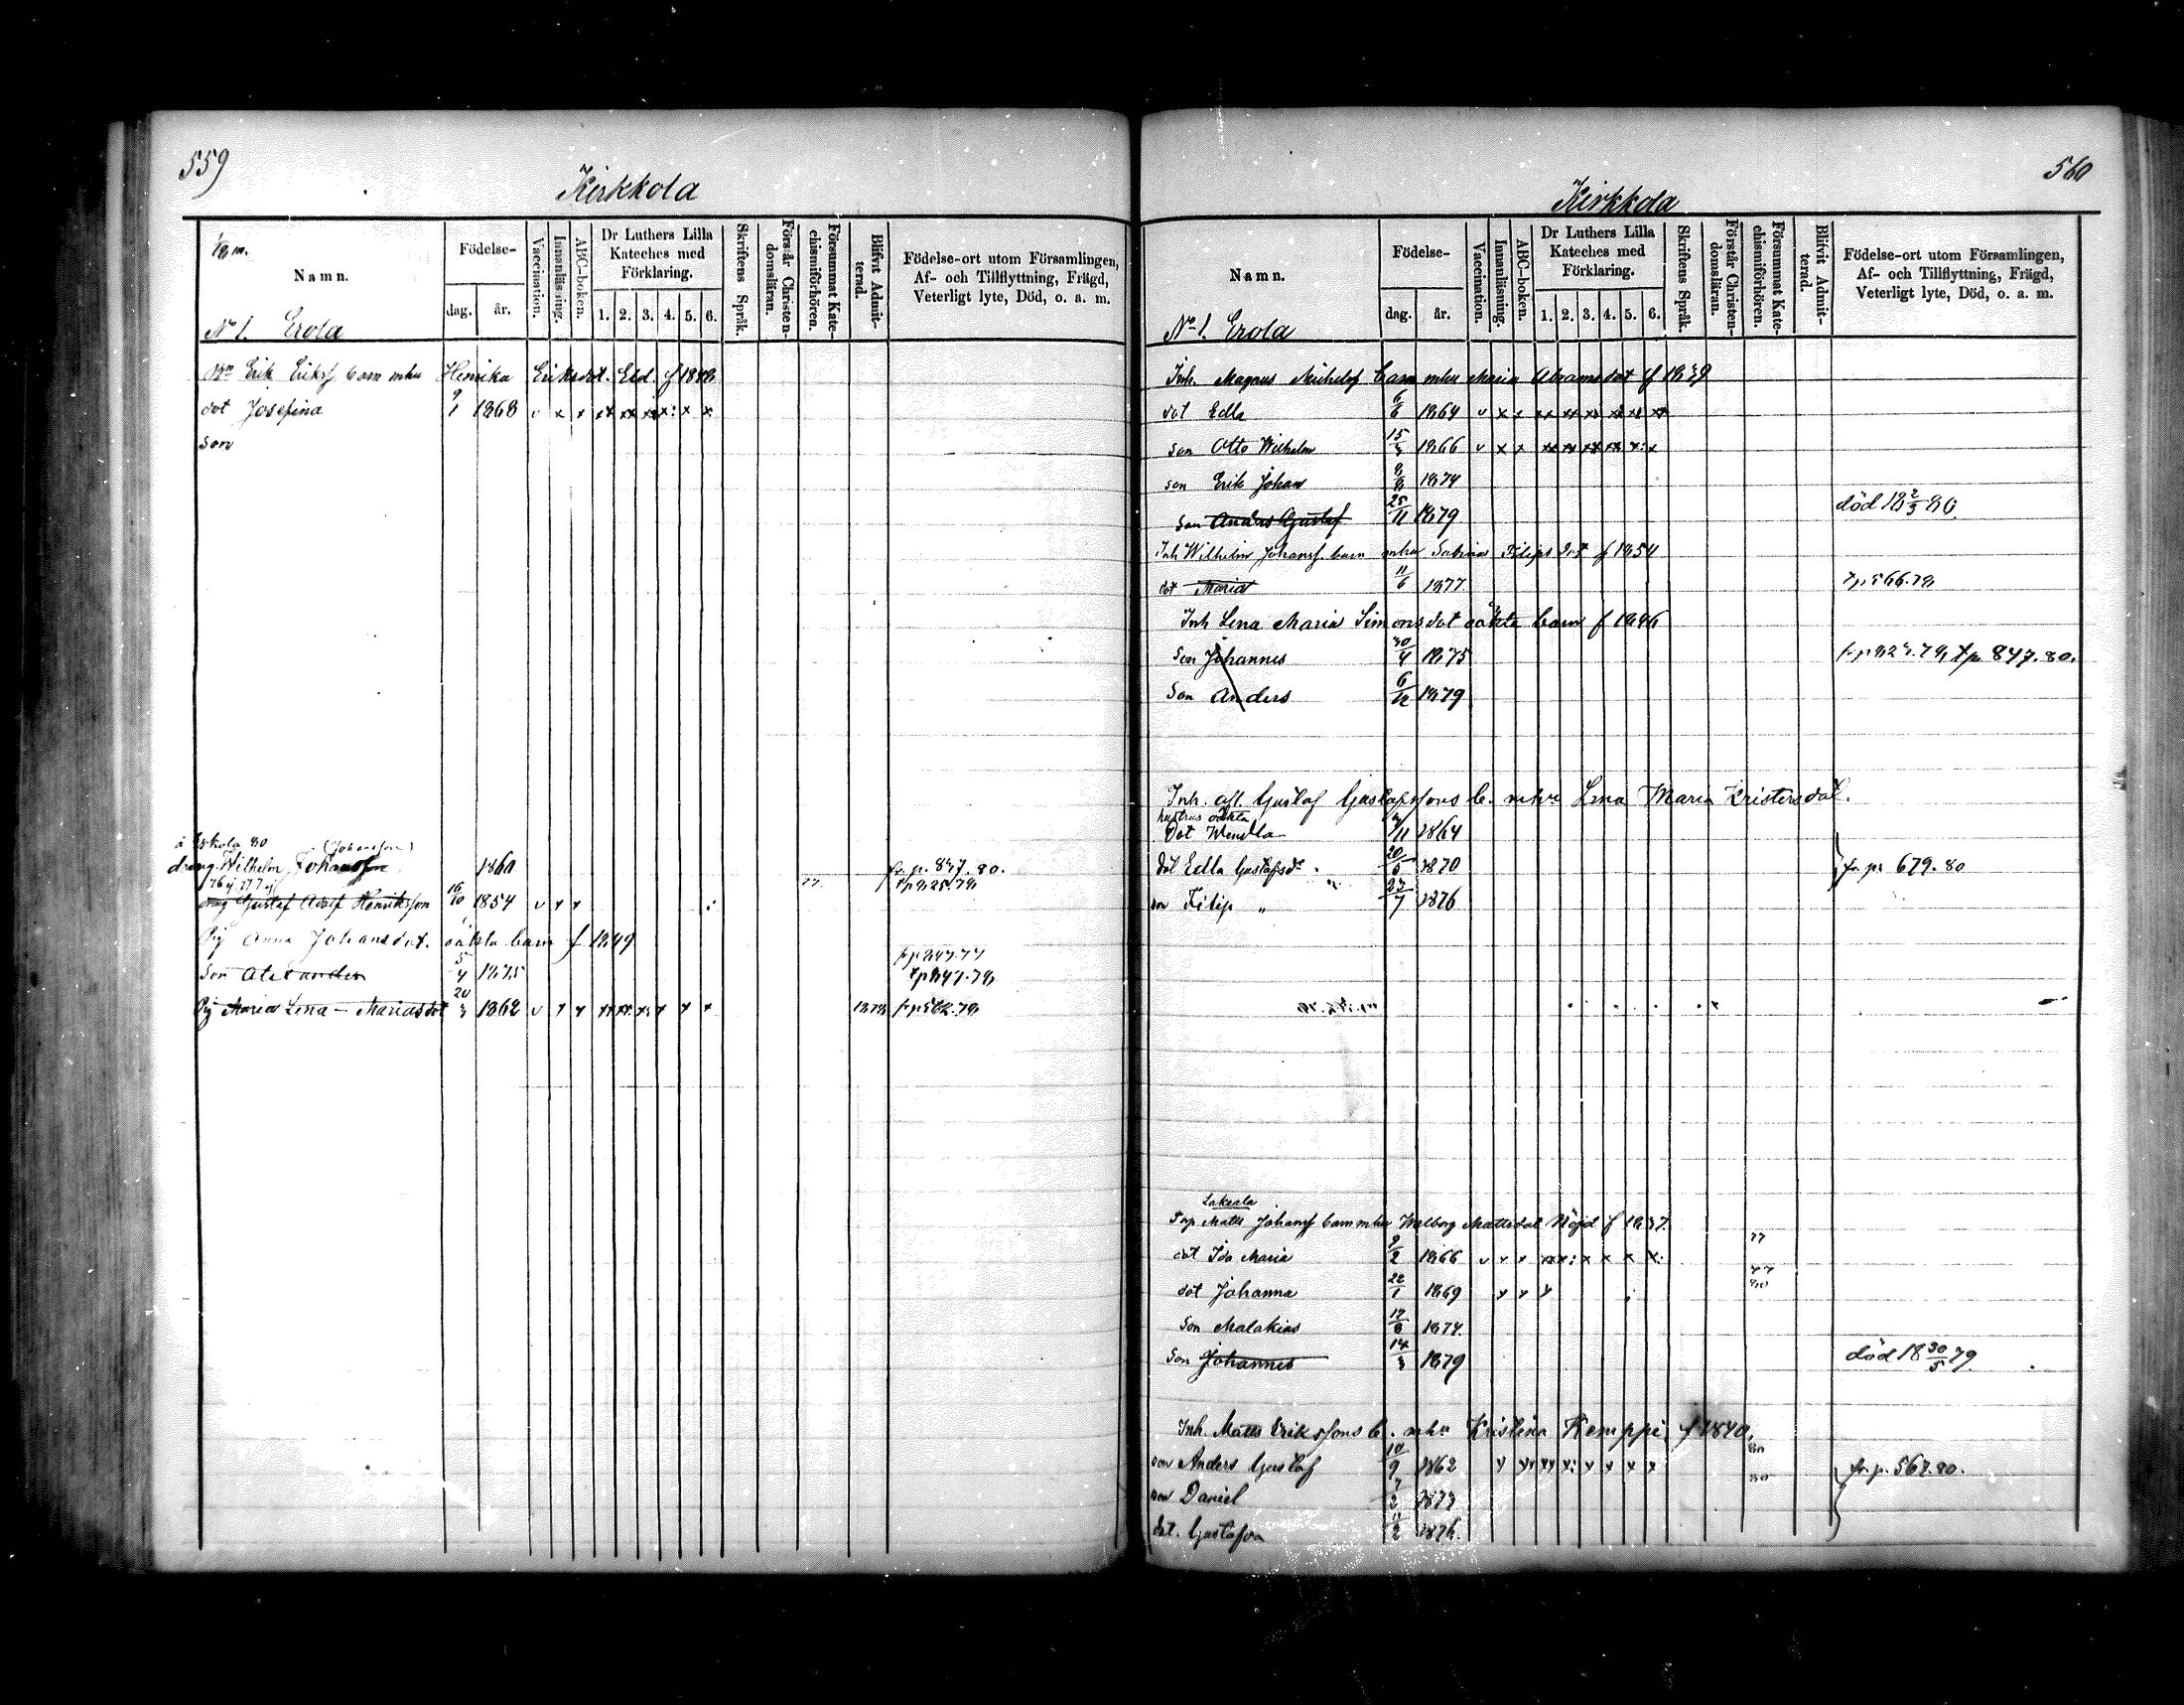 559
Kirkkola
1/8 m.
Namn.
Födelse-
dag. år.
Vaccination.
Innanläsning.
ABC-boken.
Dr Luthers Lilla Kateches med Förklaring.
1. 2. 3. 4. 5. 6.
Skriftens Språk.
Förstår Christendomsläran.
Försummat Katechismiförhören.
Blifvit Admitterad.
Födelse-ort utom Församlingen,
Af- och Tillflyttning, Frägd,
Veterligt lyte, Död, o. a. m.
No 1. Erola
Erik Eriksf barn mhu Henrika Eriksdot. Eld.
dot Josefina 9/1 1868 v x x xx xx xx x: x x
son
(Johansson)
dreng Wilhelm Johansson 1860 fr. p. 837. 80.
76 ij. 77 ij
drng Gustaf Adolf Henriksson 16/10 1854 v x x 77.
Pig Anna Johansdot. oäkta barn f 1849
son Alexander 5/4 1875
Pig Maria Lena Mariasdot 20/3 1862 v x x
560
Kirkkola
Namn.
Födelse-
dag. år.
Vaccination.
Innanläsning.
ABC-boken.
Dr Luthers Lilla Kateches med Förklaring.
1. 2. 3. 4. 5. 6.
Skriftens Språk.
Förstår Christendomsläran.
Försummat Katechismiförhören.
Blifvit Admitterad.
Födelse-ort utom Församlingen,
Af- och Tillflyttning, Frägd,
Veterligt lyte, Död, o. a. m.
No 1. Erola
Inh. Magnus Michelsf barn mhu Maria Abramsdot f 1839
dot Edla 6/6 1864 v x x
son Otto Wilhelm 15/3 1866 v x x
son Erik Johan 1874
son Anders Gustaf 25/11 1879 död 18 2/3 80.
Inh Wilhelm Johansf barn mhu Sabina Filipsdot f 1854
dot Maria 11/6 1877
Inh Lena Maria Simonsdot oäkta barn f 1846
son Johannes 30/4 1875 tp 847. 80.
son Anders 6/12 1879
Inh. afl. Gustaf Gustafssons b. mhu Lena Maria Kristersdot.
hustrus oäkta
Dot Wendla 1864
dot Edla Gustafsdr 20/5 1870 fr. p. 679. 80
son Filip " 27/7 1876
Matts Johansf barn mhu Walborg Mattsdot Nöjd f 1837.
dot Ida Maria 9/2 1866 77
dot Johanna 22/1 1869 77 80
son Malakias 17/8 1874
son Johannes 14/3 1879 död 18 30/5 79.
Inh. Matts Erikssons b. mhu Kristina Kemppi f 1840.
son Anders Gustaf 10/9 1862 80 fr. p. 567. 80.
son Daniel 1873 80
dot. Gustafva 1876.